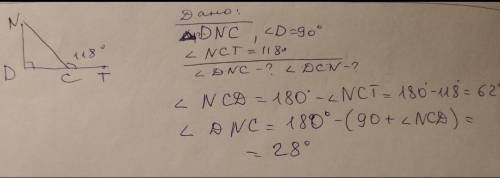 N
118°
D
C
T
Дано:
△DNC, ∠D=90°
∠NCT=118°
∠DNC-? ∠DCN-?
∠NCD=180°-∠NCT=180°-118°=62°
∠DNC=180°-(90+∠NCD)=
=28°